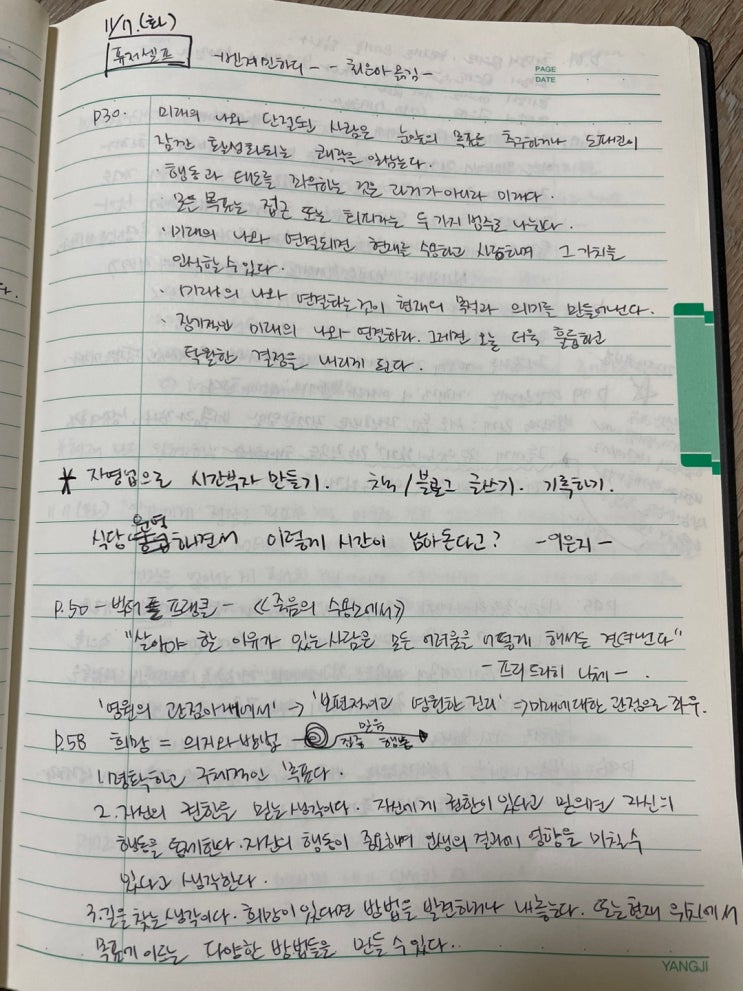 11/7.(화)
퓨처셀프 -벤저민하디- -최은아 옮김-
PAGE
DATE
P30. 미래의 나와 단절된 사람은 눈앞의 목표를 추구하거나 도파민이
잠깐 활성화되는 쾌락을 일삼는다.
· 행동과 태도를 좌우하는 것은 과거가 아니라 미래다.
모든 목표는 접근 또는 회피라는 두가지 범주로 나뉜다.
· 미래의 나와 연결되면 현재를 수용하고 사랑하며 그 가치를
인식할 수 있다.
· 미래의 나와 연결하는것이 현재의 목적과 의미를 만들어낸다.
· 장기적인 미래의 나와 연결하라. 그러면 오늘 더욱 훌륭하고
탁월한 결정을 내리게 된다.
* 자영업으로 시간부자 만들기. 책/블로그 글쓰기. 기록하기.
식당 운영 하면서 이렇게 시간이 남아돈다고? -이은지-
P.50 - 빅터 프랭클 - 《죽음의 수용소에서》
"살아야 할 이유가 있는 사람은 모든 어려움을 어떻게 해서든 견뎌낸다"
- 프리드리히 니체 -.
'영원의 관점아래에서' → '보편적이고 영원한 진리' ⇒ 미래에 대한 관점으로 좌우.
P.58 희망 = 의지와 방법 믿음 집중 행동
1. 명확하고 구체적인 목표다.
2. 자신의 권한을 믿는 생각이다. 자신에게 권한이 있다고 믿으면 자신의
행동을 통제한다. 자신의 행동이 중요하며 인생의 결과에 영향을 미칠수
있다고 생각한다.
3. 길을 찾는 생각이다. 희망이 있다면 방법을 발견하거나 내놓는다. 또는 현재 위치에서
목표에 이르는 다양한 방법들을 만들 수 있다..
YANGJI